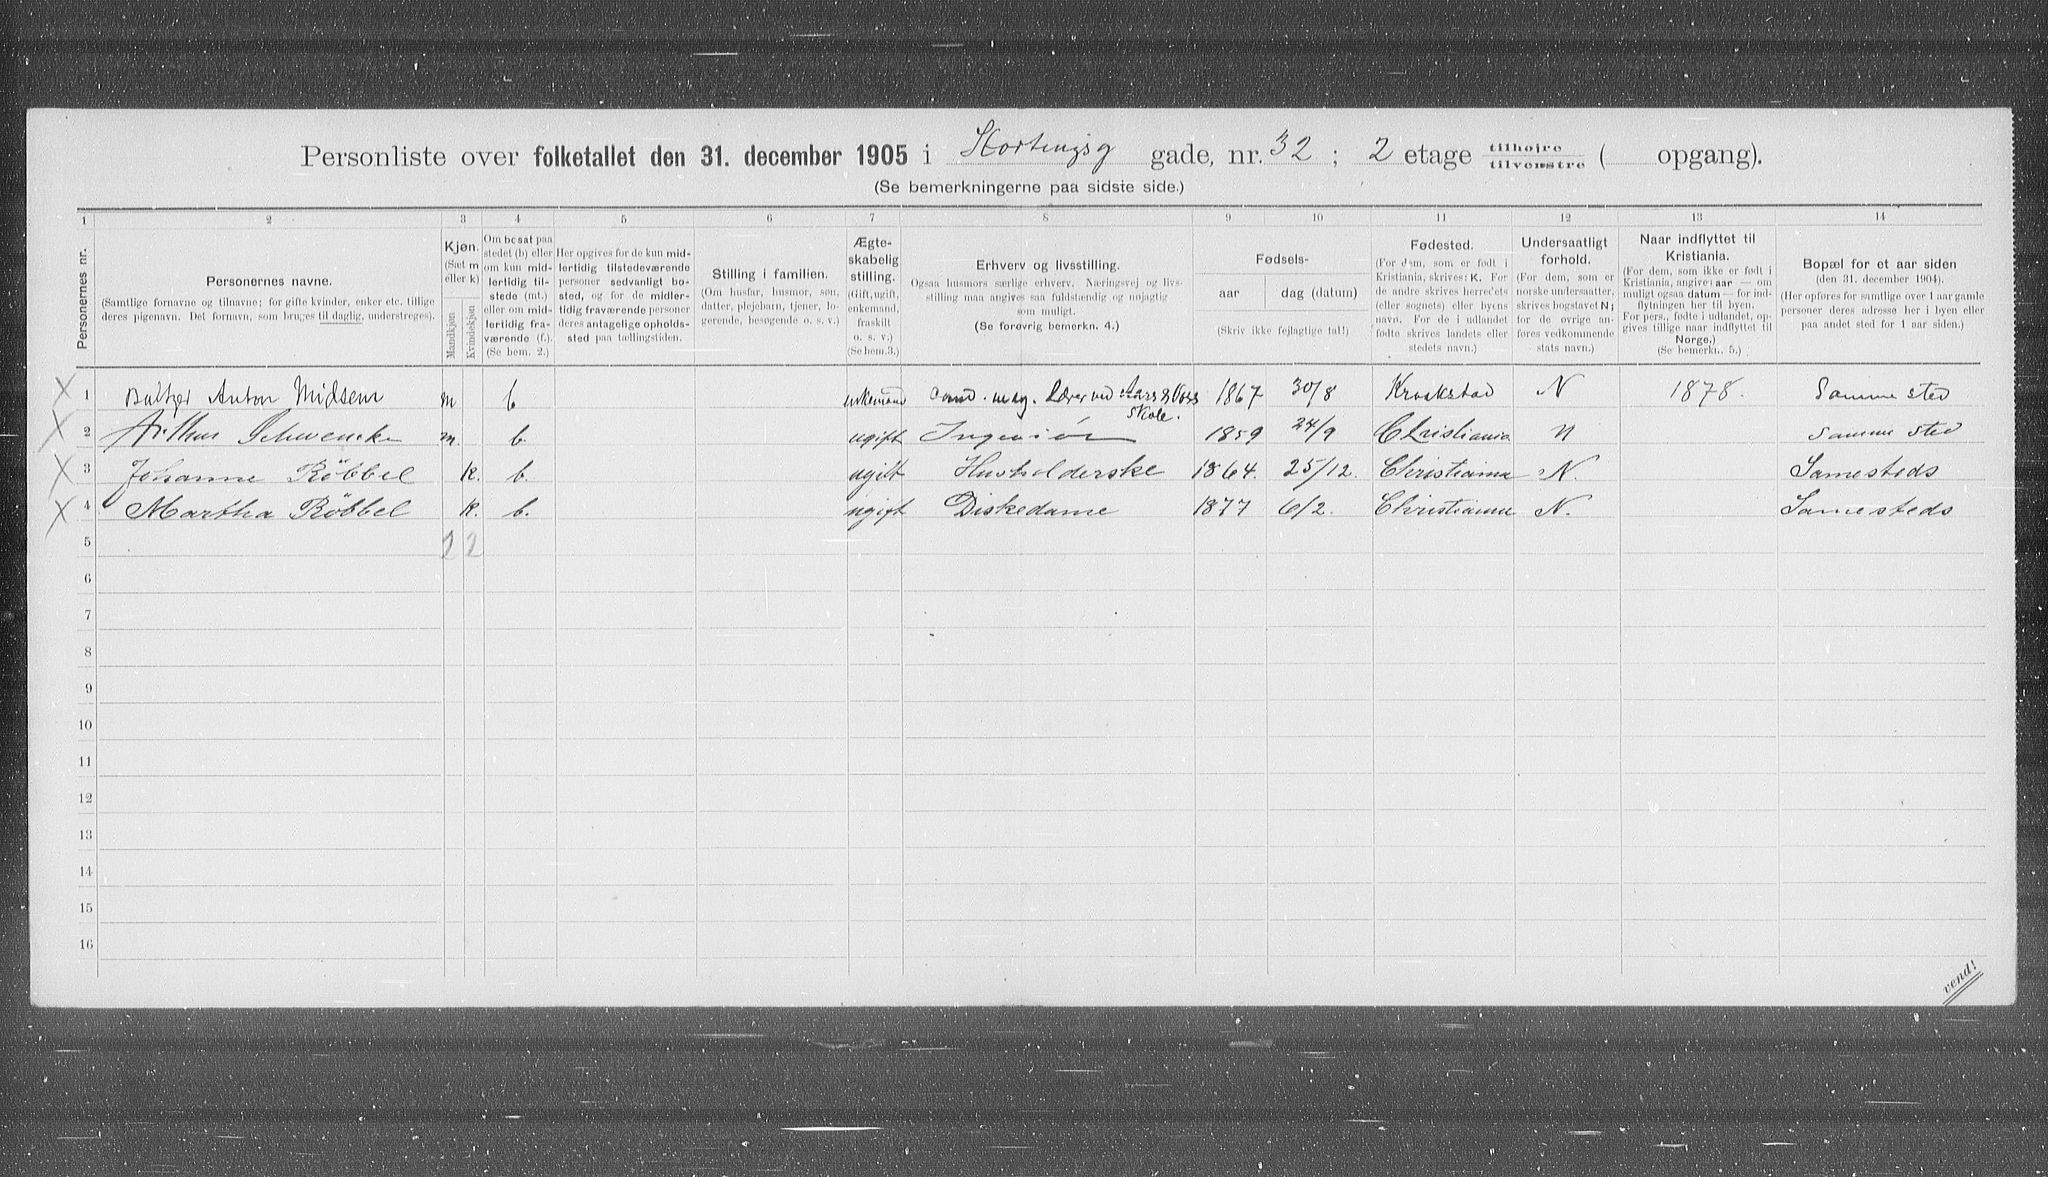 Personliste over folketallet den 31. december 1905 i Stortingsg gade, nr. 32 ; 2 etage tilhøjre tilvenstre ( opgang).
(Se bemerkningerne paa sidste side.)
1 2 3 4 5 6 7 8 9 10 11 12 13 14
Personernes nr.
Personernes navne.
(Samtlige fornavne og tilnavne; for gifte kvinder, enker etc. tillige
deres pigenavn. Det fornavn, som bruges til daglig, understreges).
Kjøn.
(Sæt m
eller k)
Mandkjøn
Kvindekjøn
Om bosat paa
stedet (b) eller
om kun mid-
lertidig til-
stede (mt.)
eller om mid-
lertidig fra-
værende (f.).
(Se bem. 2.)
Her opgives for de kun mid-
lertidig tilstedeværende
personer sedvanligt bo-
sted, og for de midler-
tidig fraværende personer
deres antagelige opholds-
sted paa tællingstiden.
Stilling i familien.
(Om husfar, husmor, søn,
datter, plejebarn, tjener, lo-
gerende, besøgende o. s. v.)
Ægte-
skabelig
stilling.
(Gift, ugift,
enkemand,
fraskilt
o. s. v.)
(Se bem.3.)
Erhverv og livsstilling.
Ogsaa husmors særlige erhverv. Næringsvej og livs-
stilling maa angives saa fuldstændig og nøjagtig
som muligt.
(Se forøvrig bemerkn. 4.)
Fødsels-
aar
dag (datum)
(Skriv ikke fejlagtige tal!)
Fødested.
(For dem, som er født i
Kristiania, skrives: K. For
de andre skrives herre'ets
(eller sognets) eller byens
navn. For de i udlandet
fødte skrives landets eller
stedets navn.)
Undersaatligt
forhold.
(For dem, som er
norske undersaatter,
skrives bogstavet N;
for de øvrige an-
føres vedkommende
stats navn.)
Naar indflyttet til
Kristiania.
(For dem, som ikke er født i
Kristiania, angives aar — om
muligt ogsaa datum — for ind-
flytningen her til byen.
For pers., fødte i udlandet, op-
gives tillige naar indflyttet til
Norge.)
(Se bemerkn. 5.)
Bopæl for et aar siden
(den 31. december 1904).
(Her opføres for samtlige over 1 aar gamle
personer deres adresse her i byen eller
paa andet sted for 1 aar siden.)
X 1 Baltzer Anton Midsem m b enkemand cand. mag. Lærer ved Aars & Voss Skole. 1867 30/8 Kraakstad N 1878. Samme sted
X 2 Arthur Schwencke m. b. ugift Ingeniør 1859 24/9 Christiania N Samme sted
X 3 Johanne Röbbel k. b. ugift Husholderske 1864. 25/12. Christiania N. Samesteds
X 4 Martha Röbbel k. b. ugift Diskedame 1877 6/2. Christiania N. Samesteds
5 2 2
6
7
8
9
10
11
12
13
14
15
16
vend!